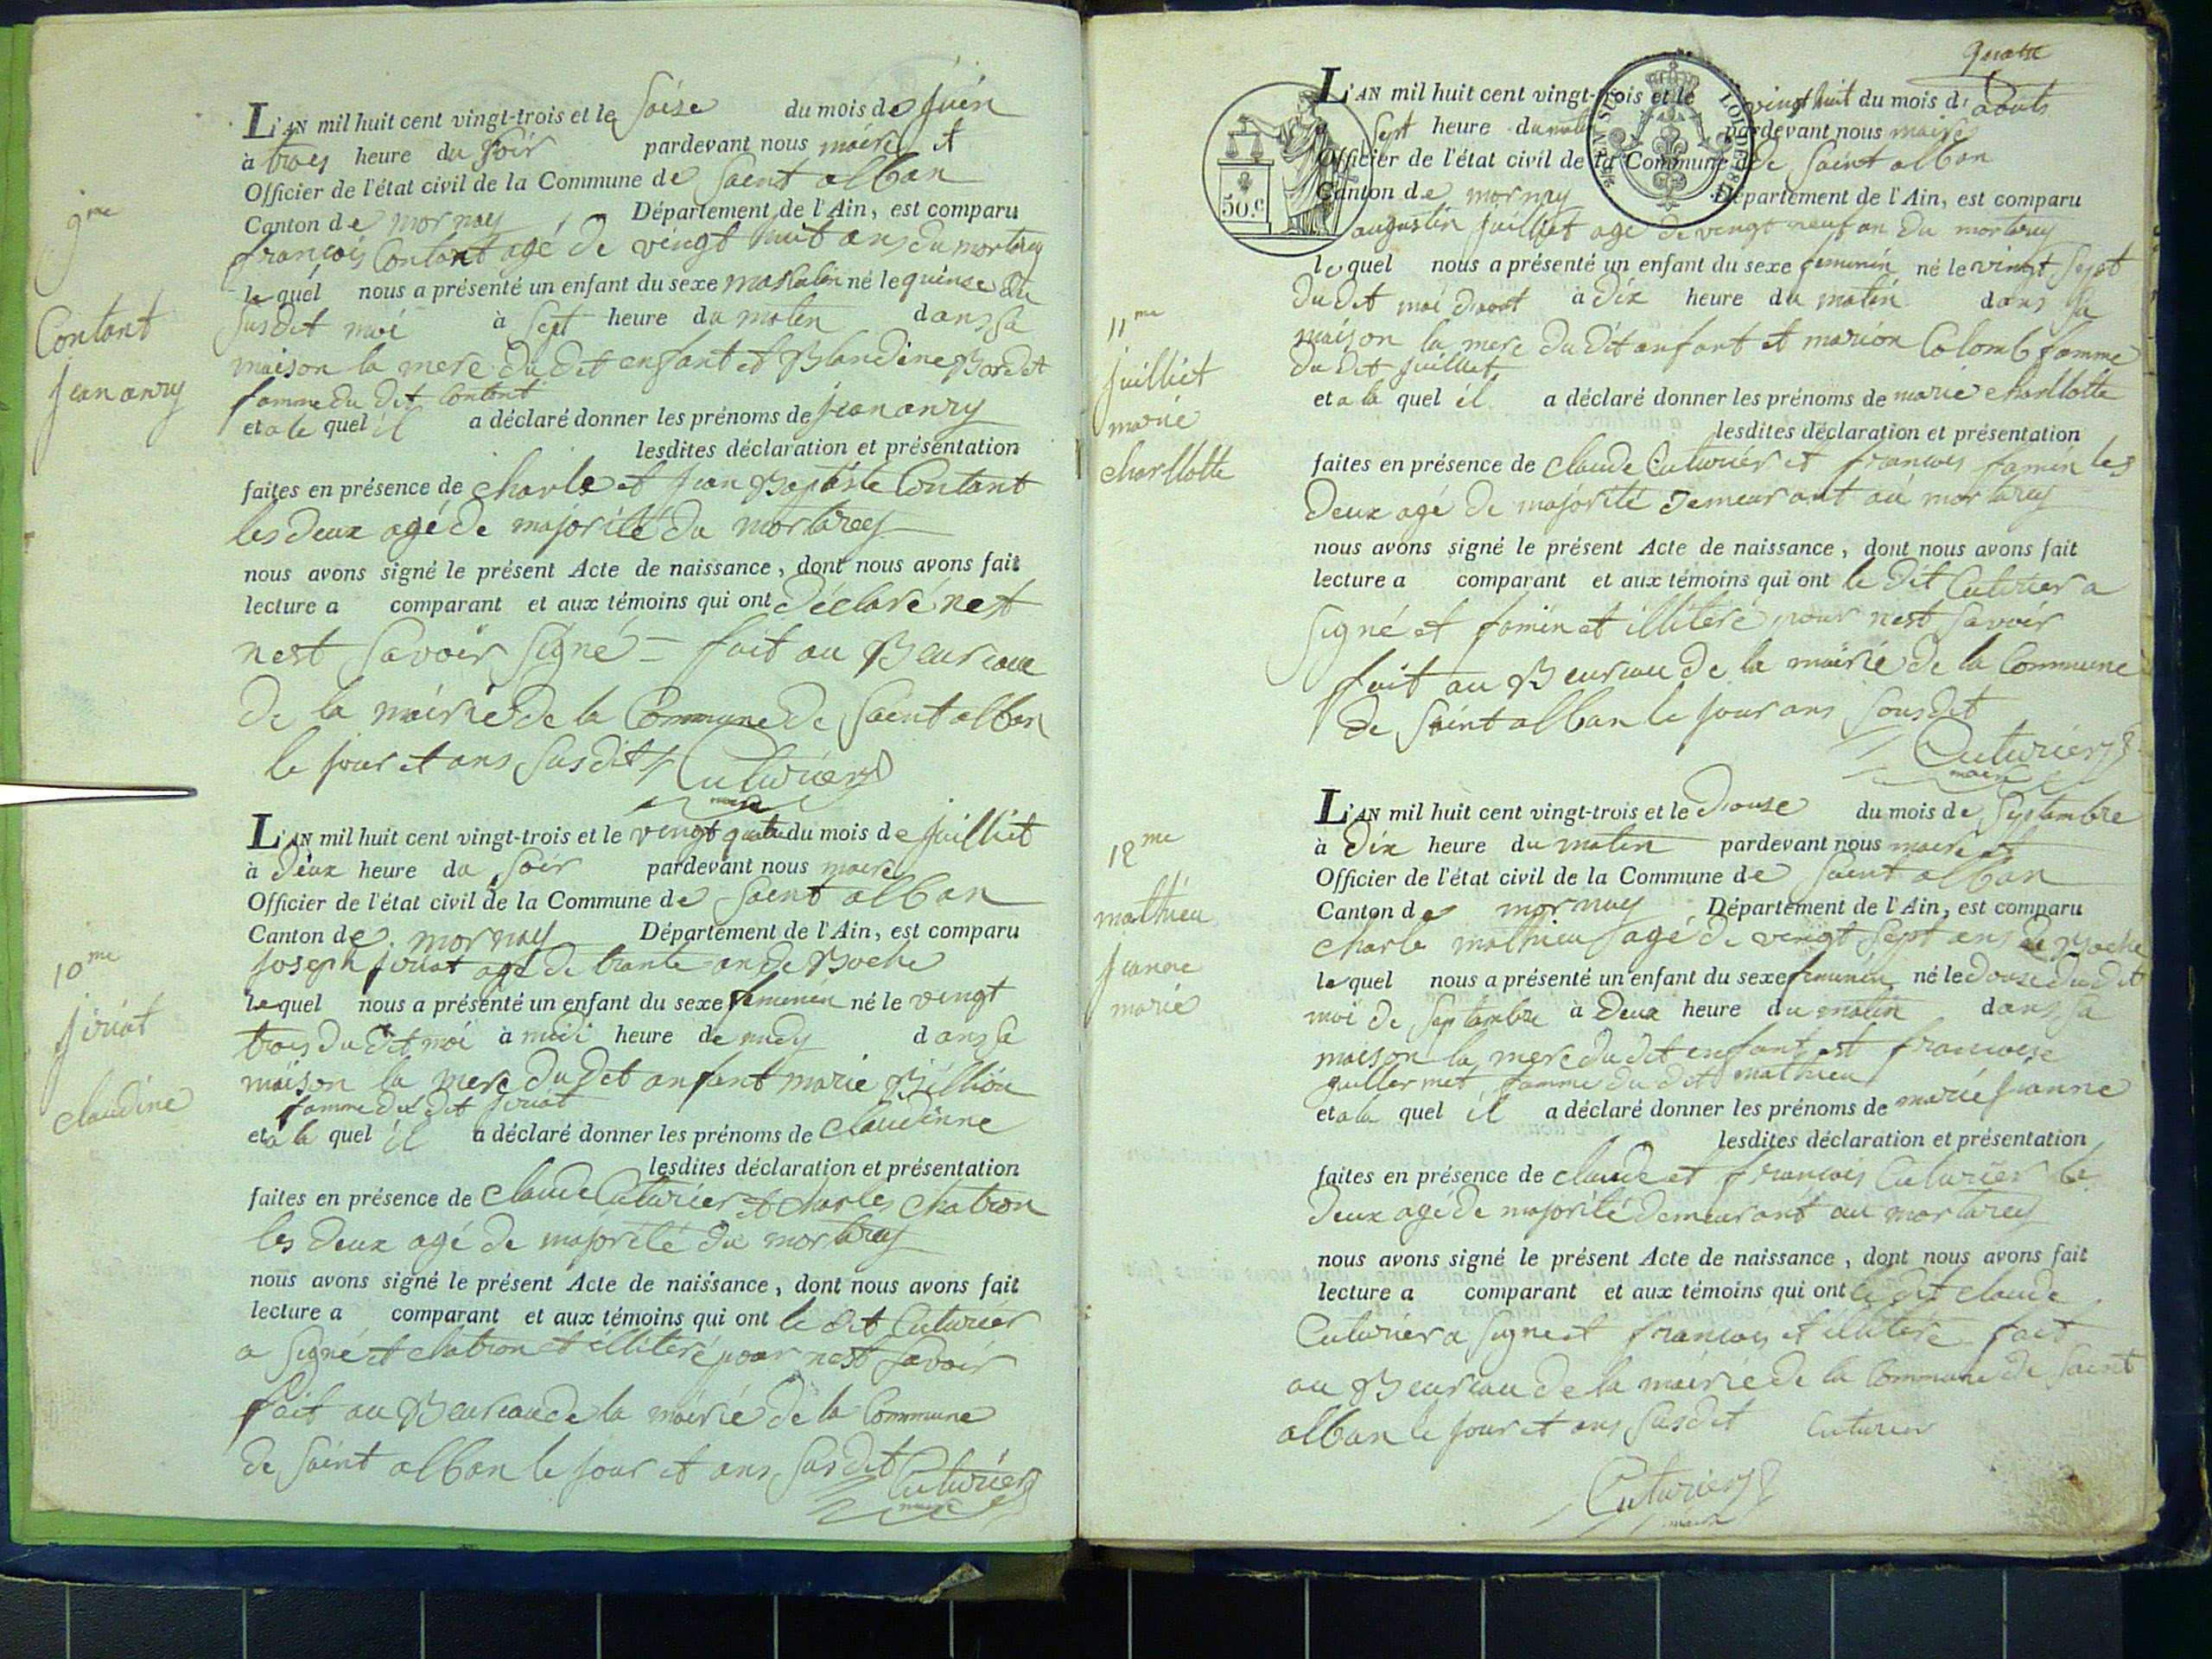 9me
Contant
jean anry
L'AN mil huit cent vingt-trois et le saise du mois de juin
à trois heure du soir pardevant nous maire et
Officier de l'état civil de la Commune de saint alban
Canton de mornay Département de l'Ain, est comparu
françois Contant agé de vingt huit ans du mortarey
le quél nous a présenté un enfant du sexe maskulin né le quinse du
susdit moi à sept heure du matin dans sa
maison la mere du dit enfant et Blandine Bordet
famme du dit Contant
et a le quel il a déclaré donner les prénoms de jean anry
lesdites déclaration et présentation
faites en présence de charle et jean Baptiste Contant
les deux agé de majorité du mortarey
nous avons signé le présent Acte de naissance, dont nous avons fait
lecture a comparant et aux témoins qui ont déclaré net
nest savoir signé - fait au Beureaue
de la mairie de la Commune de saint alban
le jour et ans susdit Cuturier
maire
10me
joriat
claudine
L'AN mil huit cent vingt-trois et le vengt quatre du mois de juilliet
à deux heure du soir pardevant nous maire
Officier de l'état civil de la Commune de saint alban
Canton de mornay Département de l'Ain, est comparu
joseph joriat agé de trante an de Boche
le quel nous a présenté un enfant du sexe femenin né le vingt
trois du dit moi à midi heure de midy dans sa
maison la mere du dit anfant marie Billion
famme du dit joriat
et a la quel il a déclaré donner les prénoms de claudinne
lesdites déclaration et présentation
faites en présence de claude Cuturier et charles chatron
les deux agé de majorité du mortarey
nous avons signé le présent Acte de naissance, dont nous avons fait
lecture a comparant et aux témoins qui ont le dit Cuturier
a signé et chatron et illiteré pour nest savoir
fait au Beureau de la mairie de la Commune
de saint alban le jour et ans susdit Cuturier
maire
quatre
L'AN mil huit cent vingt-trois et le vingt huit du mois d'aouts
à sept heure du matin pardevant nous maire
Officier de l'état civil de la Commune de saint alban
Canton de mornay Département de l'Ain, est comparu
50.c
LOI DE 18
augustin juilliet agé de vingt neuf an du mortarey
le quel nous a présenté un enfant du sexe femenin né le vingt sept
du dit moi daout à dix heure du matin dans sa
maison la mere du dit anfant et marion Colomb famme
du dit juilliet
et a la quel il a déclaré donner les prénoms de marie charllotte
11me
juilliet
marie
charllotte
lesdites déclaration et présentation
faites en présence de claude Cuturier et francois famin les
deux agé de majorité demeurant au mortarey
nous avons signé le présent Acte de naissance, dont nous avons fait
lecture a comparant et aux témoins qui ont le dit Cuturier a
signé et famin et illiteré pour nest savoir
fait au Beureau de la mairie de la Commune
de saint alban le jour ans sousdit
Cuturier
maire
12me
mathieu
jeanne
marie
L'AN mil huit cent vingt-trois et le douse du mois de septambre
à dix heure du matin pardevant nous maire et
Officier de l'état civil de la Commune de saint alban
Canton de mornay Département de l'Ain, est comparu
charle mathieu agé de vingt sept ans de Boche
le quel nous a présenté un enfant du sexe femenin né le douse du dit
moi de septambre à deux heure du matin dans sa
maison la mere du dit enfant et francoise
guillermet famme du dit mathieu
et a la quel il a déclaré donner les prénoms de marie jeanne
lesdites déclaration et présentation
faites en présence de claude et françois Cuturier le
deux agé de majorité demeurant au mortarey
nous avons signé le présent Acte de naissance, dont nous avons fait
lecture a comparant et aux témoins qui ont le dit claude
Cuturier a signe et francois et illiteré fait
au Beureau de la mairie de la Commune de saint
alban le jour et ans susdit Cuturier
Cuturier
maire